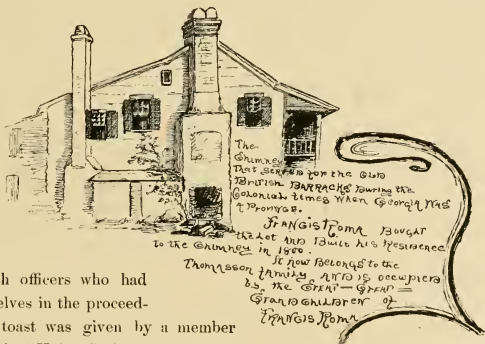 The
Chimney
That SERVED for the OLD
British BARRACKS During the
Colonial times When Georgia WAS
A Province.
FRANCIS ROMA BOUGHT
the Lot AND Built his Residence
to the Chimney in 1800.
It now Belongs to the
Thomasson family AND is occupied
by the GREAT-GREAT=
GRANDCHILDREN of
FRANCIS ROMA
h officers who had
elves in the proceed-
toast was given by a member